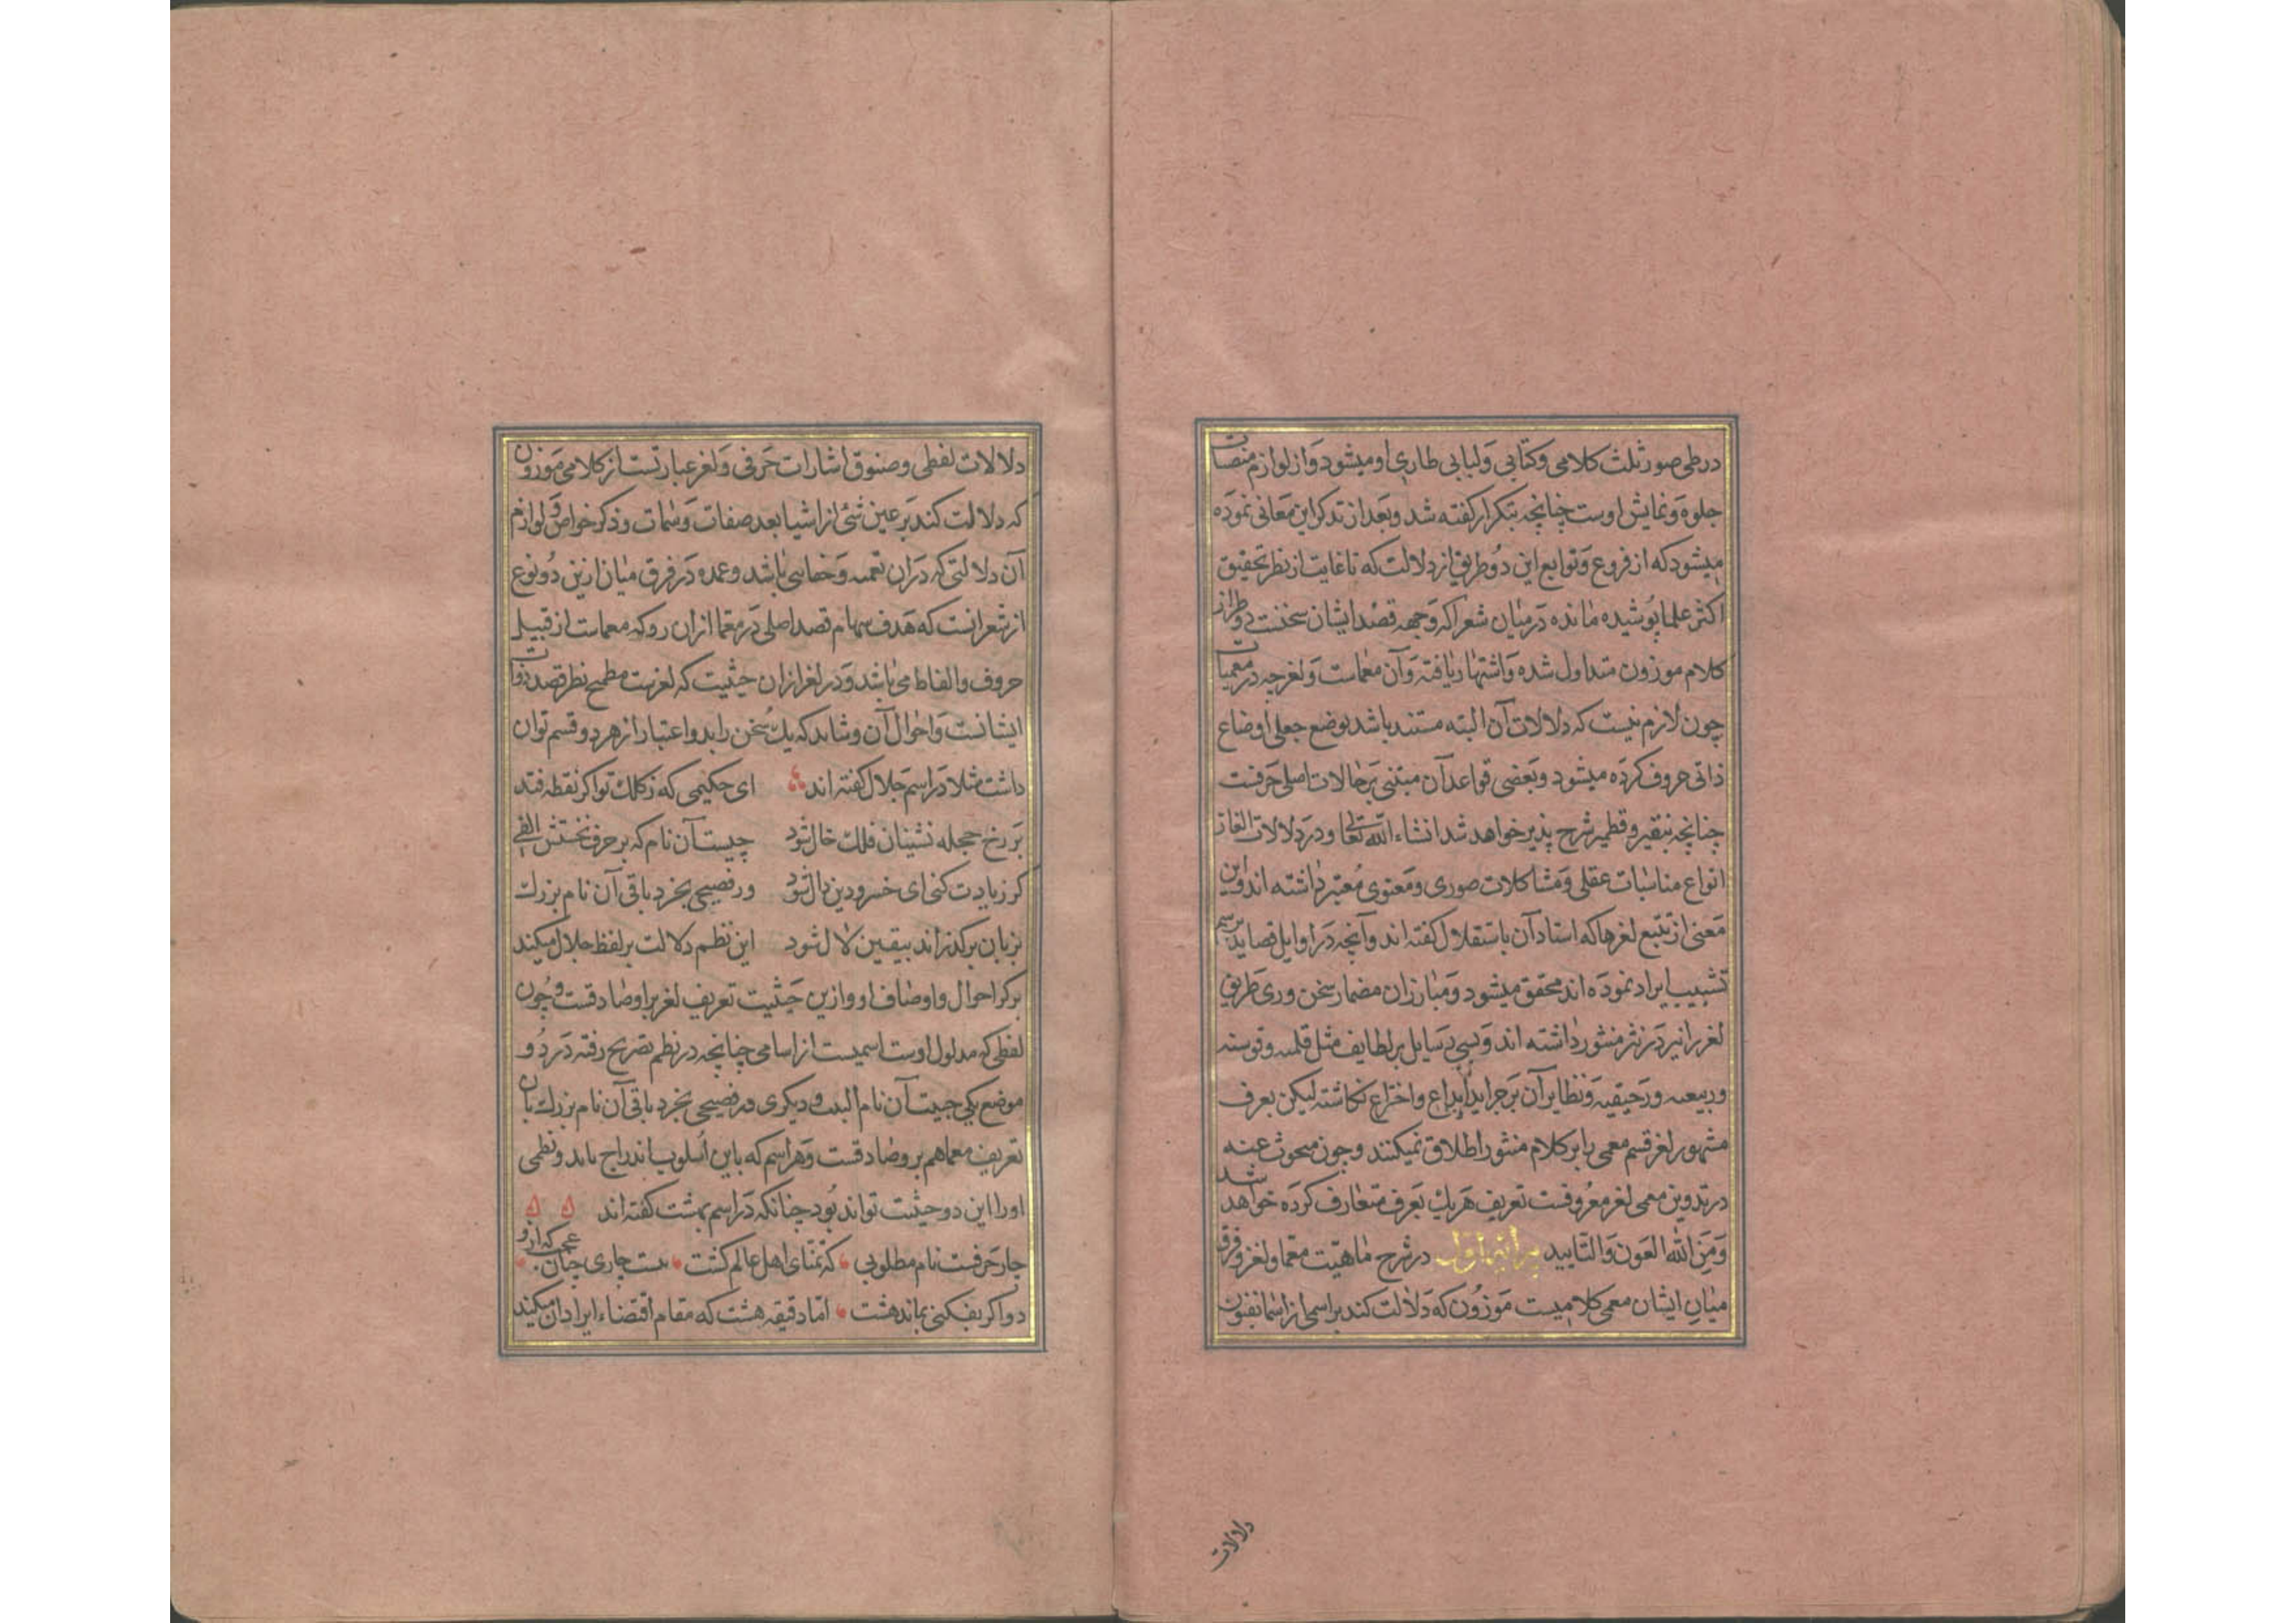 در طی صور ثلث کلامی و کتابی و لبابی طاری او میشود و از لوازم منصات
جلوه و نمایش اوست چنانچه بتکرار کفته شد و بعد از تذکر این معانی نموده
میشود که از فروع و توابع این دو طریق از دلالت که تا غایت از نظر تحقیق
اکثر علما پوشیده مانده در میان شعرا که وجهه قصد ایشان سخنست در طراز
کلام موزون متداول شده و اشتهار یافته و آن معماست و لغز چه در معمیات
چون لازم نیست که دلالات آن البته مستند باشد بوضع جعلی اوضاع
ذاتی حروف کرده میشود و بعضی قواعد آن مبتنی بر حالات اصلی حرفست
چنانچه بنقیر و قطمیر شرح پذیر خواهد شد انشاء الله تعالی و در دلالات الغاز
انواع مناسبات عقلی و مشاکلات صوری و معنوی معتبر داشته اند و این
معنی از تتبع لغزها که استادان باستقلال کفته اند و آنچه در اوایل قصاید برسم
تشبیب ایراد نموده اند محقق میشود و مبارزان مضمار سخن وری طریق
لغز را نیز در نثر منثور داشته اند و بسی رسایل بر لطایف مثل قلمیه و قوسیه
و ربیعیه و رحیقیه و نظایر آن بر جراید ابداع و اختراع نکاشته لیکن بعرف
مشهور لغز قسم معمی را بر کلام منثور اطلاق نمیکنند و چون مبحوث عنه
در تدوین معمی لغز معروفست تعریف هر یک بعرف متعارف کرده خواهد شد
و من الله العون و التایید پیرایه اول در شرح ماهیت معما و لغز و فرق
میان ایشان معمی کلامیست موزون که دلالت کند بر اسمی از اسما بفنون
دلالات
دلالات لفظی و صنوف اشارات حرفی و لغز عبارتست از کلامی موزون
که دلالت کند بر عین شئ از اشیا بعد صفات و سمات و ذکر خواص و لوازم
آن دلالتی که در ان تعمیه و خفایی باشد و عمده در فرق میان ازین دو نوع
از شعر انست که هدف سهام قصد اصلی در معما ازان رو که معماست از قبیل
حروف و الفاظ می باشد و در لغز ازان حیثیت که لغزیت مطمح نظر قصد ذوات
ایشانست و احوال آن و شاید که یک سخن را بدو اعتبار از هر دو قسم توان
داشت مثلا در اسم جلال کفته اند ای حکیمی که ز کلک تو اکر نقطه فتد
بر رخ حجله نشینان فلک خال شود چیست آن نام که بر حرف نخستش الفی
کر زیادت کنی ای خسرو دین دال شود ور فصیحی بخرد باقی آن نام بزرک
بزبان برکذراند بیقین لال شود این نظم دلالت بر لفظ جلال میکند
بر کر احوال و اوصاف او و ازین حیثیت تعریف لغز بر او صادقست و چون
لفظی که مدلول اوست اسمیست از اسامی چنانچه در نظم تصریح رفته در دو
موضع یکی چیست آن نام البیت و دیکری ور فصیحی بخرد باقی آن نام بزرک بان
تعریف معما هم برو صادقست و هر اسم که باین اسلوب اندراج یابد و نظمی
اورا این دو حیثیت تواند بود چنانکه در اسم بهشت کفته اند
چار حرفست نام مطلوبی که تمنای اهل عالم کشت هست چاری چنان عجب که ازو
دو اکر بفکنی بماند هشت اما دقیقه هست که مقام اقتضاء ایراد ان میکند